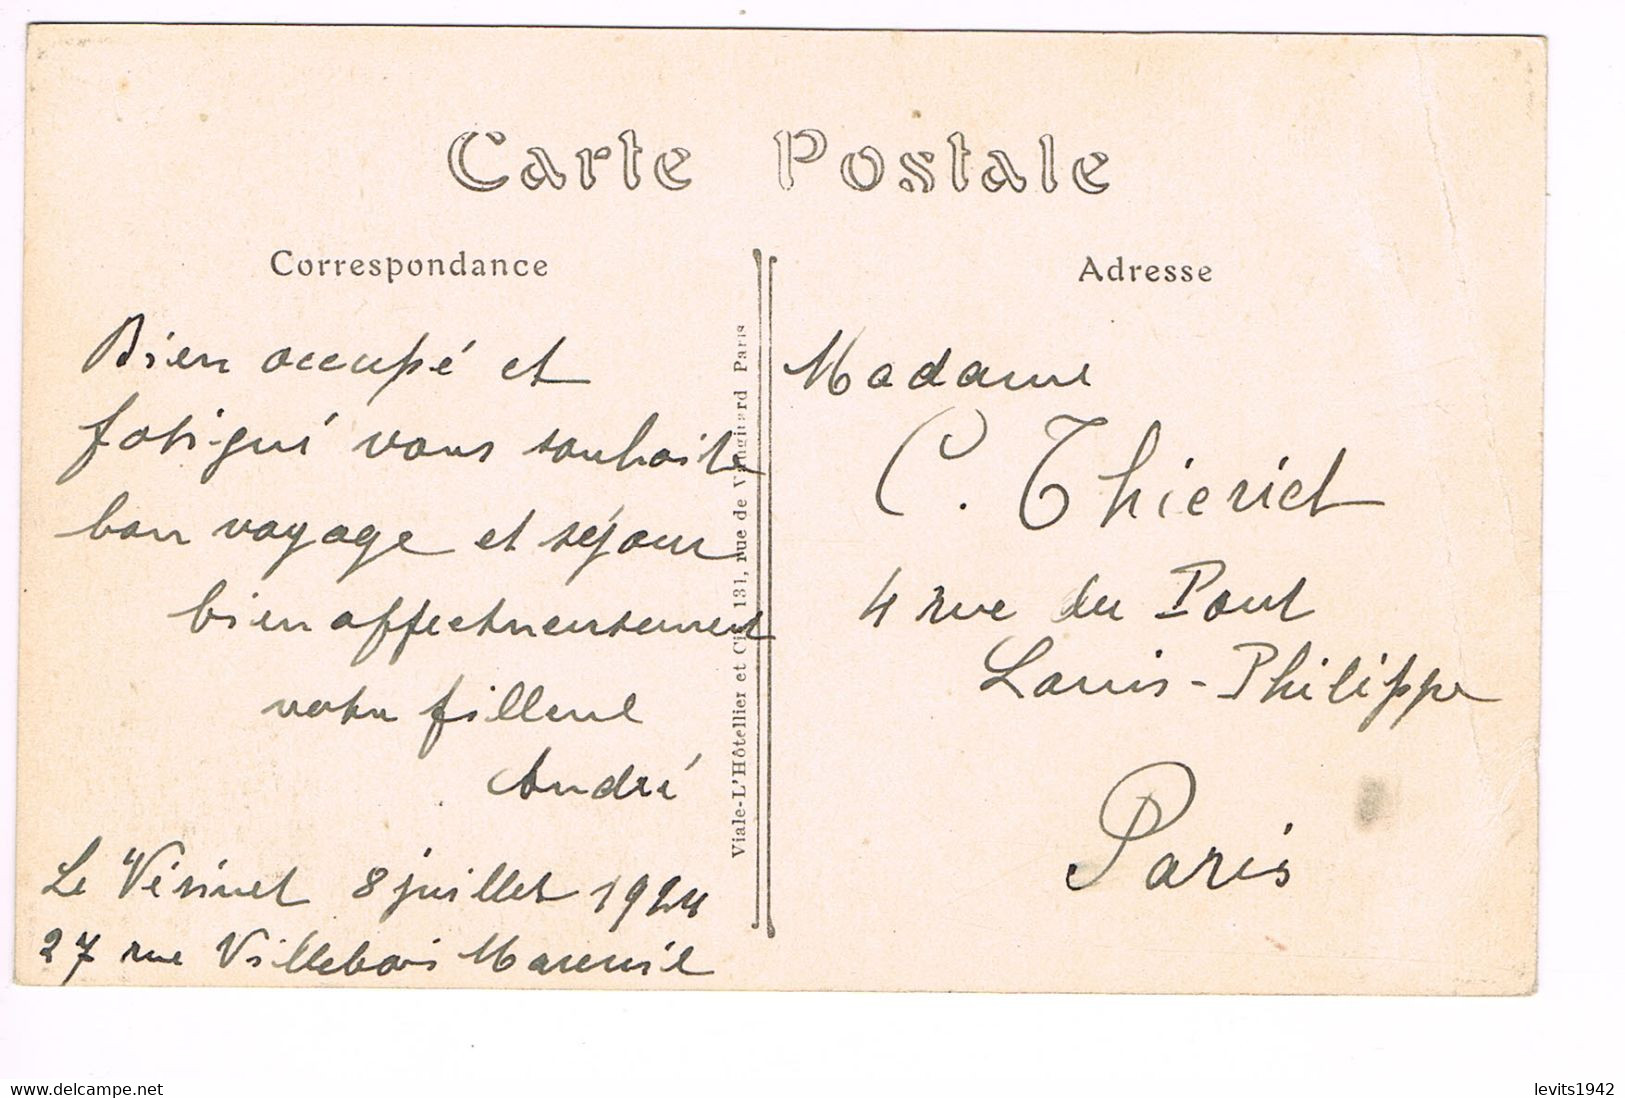 Carte Postale
Correspondance
Bien occupé et
fatigué vous souhaite
bon voyage et séjour
bien affectueusement
votre filleul
André
Le Vésinet 8 juillet 1924
27 rue Villebois Mareuil
Viale-L'Hôtellier et Cie, 131, rue de Vaugirard Paris
Adresse
Madame
C. Thieriet
4 rue du Pont
Louis-Philippe
Paris
www.delcampe.net
levits1942